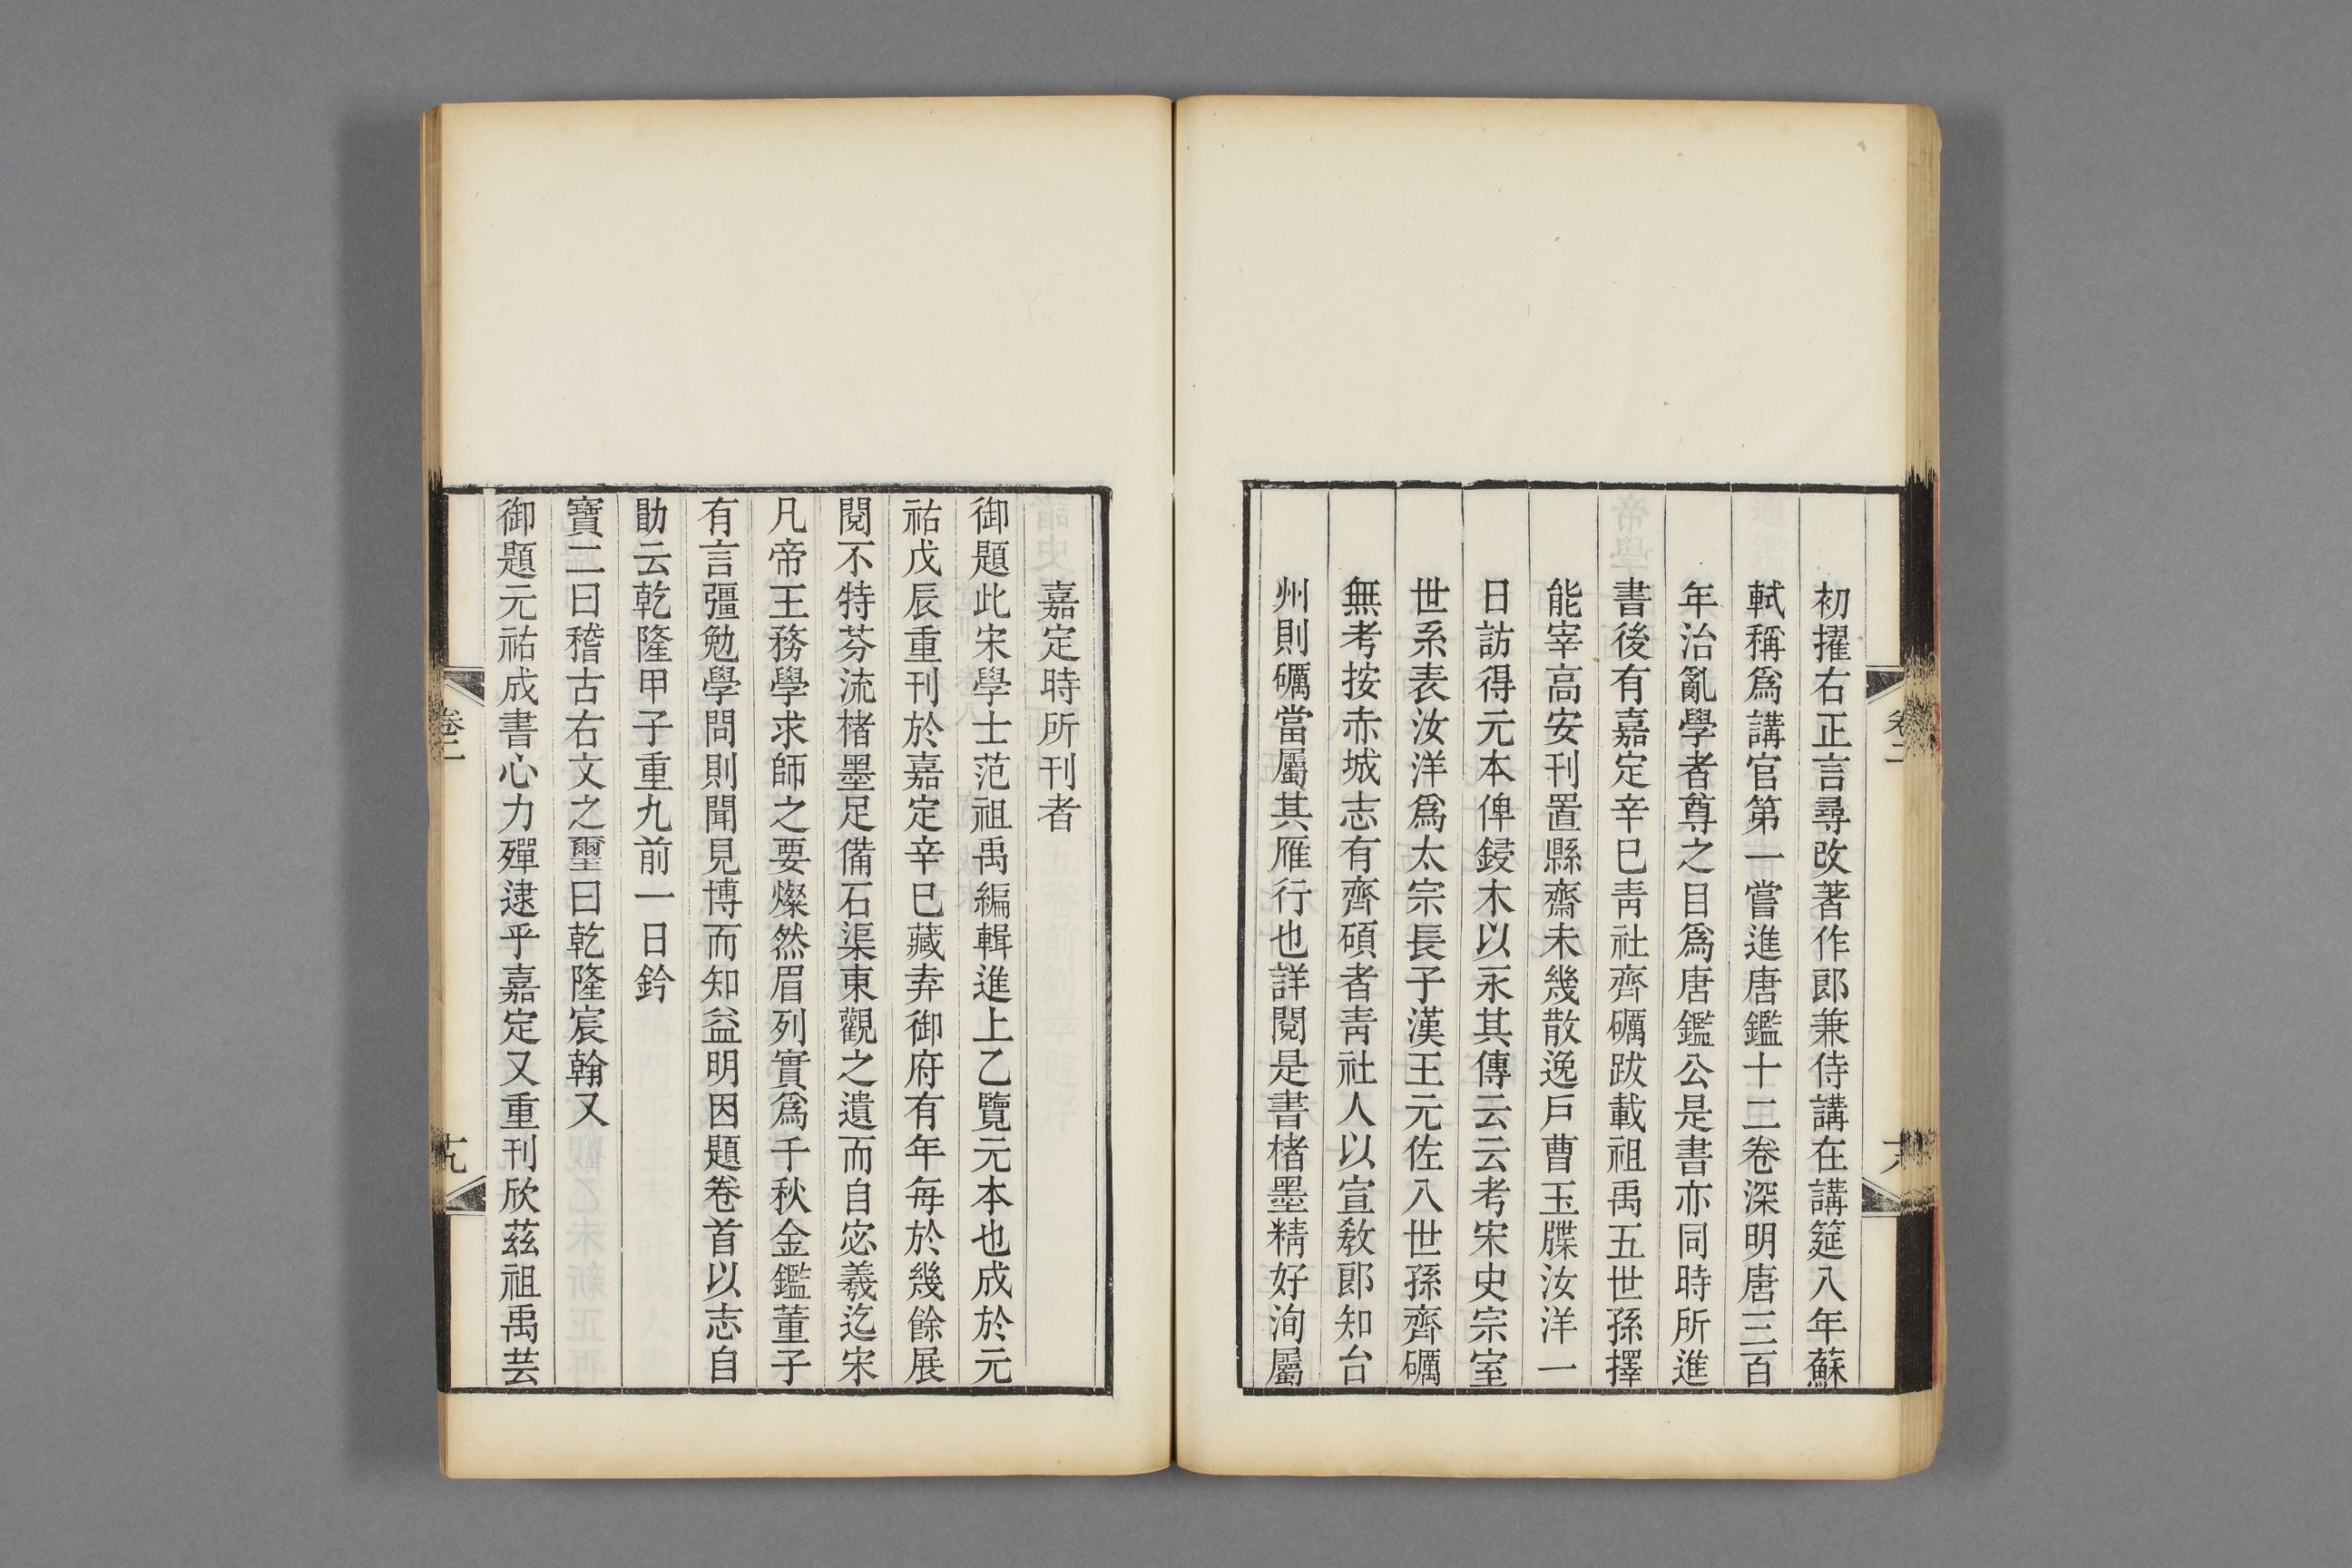 初擢右正言尋改著作郎兼侍講在講筵八年蘇
軾稱爲講官第一嘗進唐鑑十二卷深明唐三百
年治亂學者尊之目爲唐鑑公是書亦同時所進
書後有嘉定辛巳靑社齊礪跋載祖禹五世孫擇
能宰高安刊置縣齋未幾散逸戶曹玉牒汝洋一
日訪得元本俾鋟木以永其傳云云考宋史宗室
世系表汝洋爲太宗長子漢王元佐八世孫齊礪
無考按赤城志有齊碩者靑社人以宣敎郎知台
州則礪當屬其雁行也詳閱是書楮墨精好洵屬
卷二
十八
嘉定時所刊者
御題此宋學士范祖禹編輯進上乙覽元本也成於元
祐戊辰重刊於嘉定辛巳藏弆御府有年每於幾餘展
閱不特芬流楮墨足備石渠東觀之遺而自宓羲迄宋
凡帝王務學求師之要燦然眉列實爲千秋金鑑董子
有言彊勉學問則聞見博而知益明因題卷首以志自
勖云乾隆甲子重九前一日鈐
寶二曰稽古右文之璽曰乾隆宸翰又
御題元祐成書心力殫逮乎嘉定又重刊欣茲祖禹芸
卷二
十九